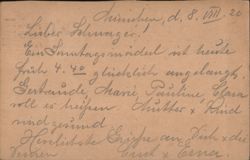 München, d. 8. VIII. 20
Lieber Schwager!
Ein Sonntagsmädel ist heute
früh 4.40 glücklich angelangt,
Gertraude, Marie, Pauline, Clara
soll es heißen. Mutter & Kind
sind gesund.
Herzlichste Grüße an Dich & die
Deinen